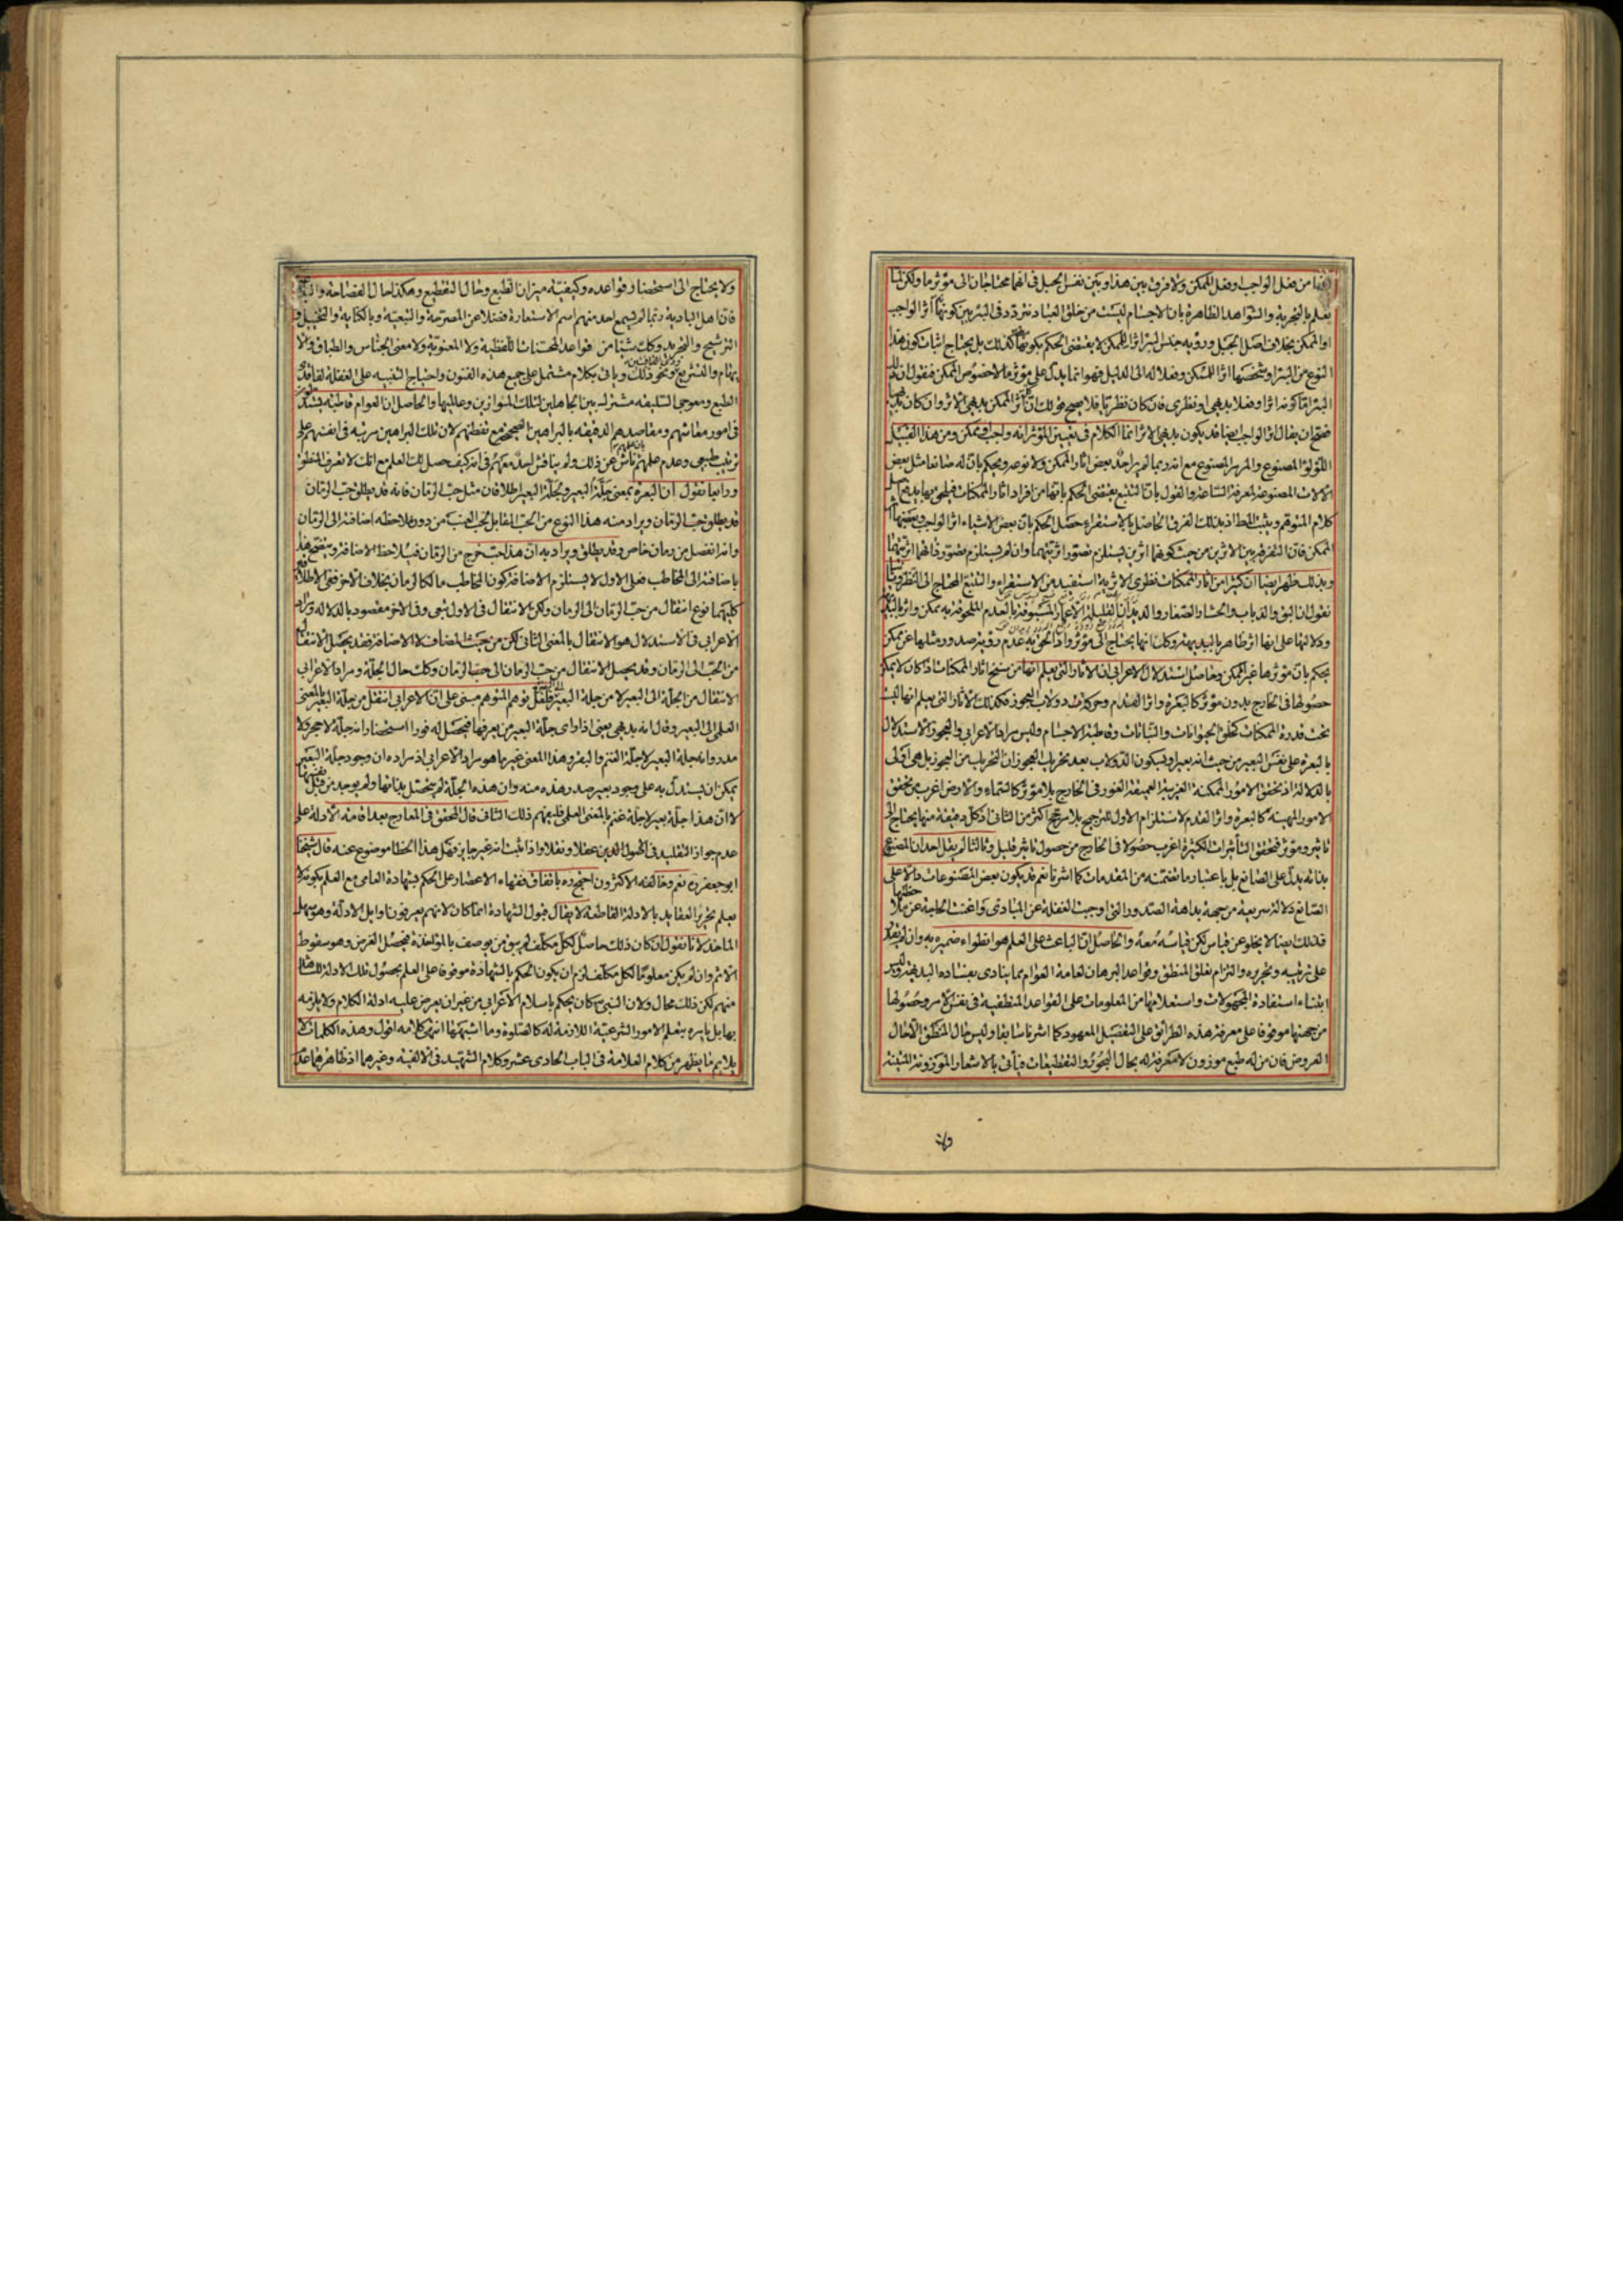 من فعل الواجب او فعل الممكن ولا فرق بين هذا وبين نفس الجبل فى انهما محتاجان الى مؤثر ما ولكن لما
يعلم بالتجربة والشواهد الظاهرة بان الاجسام ليست من خلق العباد
او الممكن بخلاف اصل الجبل ورؤيه جنس البئر اثرا للممكن لا يقتضى الحكم بكونها كذلك بل يحتاج اثبات كون هذا
النوع من البئر او شخصها اثرا للممكن وفعلا له الى الدليل فهو انما يدل على مؤثر ما لا خصوص الممكن فنقول ان
البئر اما كونه اثرا وفعلا بديهى او نظرى فان كان نظريا فلا يصح قولك ان اثر الممكن بديهى الاثر وان كان
فصح ان يقال اثر الواجب ايضا قد يكون بديهى الاثر انما الكلام فى تعيين المؤثر انه واجب او ممكن ومن هذا القبيل
اللؤلؤ المصنوع مع انه ربما لم ير احد بعض اثار الممكن ولا نوعه ويحكم بان له صانعا مثل بعض
الالات المصنوعة لمعرفة الساعة والقول بان التتبع يقتضى الحكم بانها من افراد اثار الممكنات
كلام المتوهم ويثبت اذ بذلك الفرق الحاصل بالاستقراء حصل الحكم بان بعض الاشياء اثر الواجب وبعضها اثر
الممكن فان التفرقة بين الاثرين من حيث كونهما اثرين يستلزم تصور اثريتهما وان لم يستلزم
وبذلك ظهر ايضا ان كثيرا من اثار الممكنات نظرى الاثرية استفيد من الاستقراء والتتبع المحتاج الى النظر
نقول ان البق والذباب والحشار الصغار والديدان القليلة الاعمار المسبوقة بالعدم الملحوقة به ممكن واثر بالبديهة
ودلالتها على انها اثر ظاهر بالبديهة وكلت انها يحتاج الى مؤثر واذا لم يجز بعدم رؤية صدور مثلها عن ممكن
يحكم بان مؤثرها غير الممكن وحاصل استدلال الاعرابى ان الاثار التى يعلم انها من سنخ اثار الممكنات اذا كان لا يمكن
حصولها فى الخارج بدون مؤثر كالبعرة واثر القدم وحركة دولاب العجوز فكذلك الاثار التى يعلم انها ليست
تحت قدرة الممكنات كخلق الحيوانات والنباتات وقاطبة الاجسام وليس مراد الاعرابى والعجوز الاستدلال
بالبعرة على نفس البعير من حيث انه بعير او بكون الدولاب بعد تحريك العجوز ان التحريك من العجوز بل هى اولى
بالدلالة اذ تحقق الامور الممكنة الغريبة العميقة الغور فى الخارج بلا مؤثر كالسماء والارض اغرب من تحقق
الامور المهينة كالبعرة واثر القدم لاستلزام الاول للترجيح بلا مرجح اكثر من الثانى اذ كل دقيقة منها يحتاج الى
تاثير ومؤثر فتحقق التأثيرات الكثيرة اغرب حصولا فى الخارج من حصول تاثير قليل وثالثا لم يقل احد ان المصنوع
بذاته يدل على الصانع بل باعتبار ما تضمنه من المقدمات كما اشرنا نعم قد يكون بعض المصنوعات دالا على
الصانع دلالة سريعة من جهة بداهة الصدور التى اوجبت الغفلة عن المبادى واغنت الحاجة عن ملاحظتها
فذلك ايضا لا يخلو عن قياس لكن قياسه معه والحاصل ان الباعث على العلم هو انطواء ضميره به وان لم يقدر
على ترتيبه وتحريره والتزام تعلق المنطق وقواعد البرهان لعامة العوام مما ينادى بفساده البديهة وليس
ابتناء استفادة المجهولات واستعلامها من المعلومات على القواعد المنطقية فى نفس الامر وحصولها
من جهتها موقوفا على معرفة هذه الطرائق على التفصيل المعهود كما اشرنا سابقا وليس حال المنطق الا كحال
العروض فان من له طبع موزون لا معرفة له بحال البحور والتقطيعات ويأتى بالاشعار الموزونة المتينة
ولا يحتاج الى استحضار قواعده وكيفيته ميزان تطبع وحال التقطيع وهكذا حال الفصاحة
فان اهل البادية ربما لم يسمع احد منهم اسم الاستعارة فضلا عن المصرحة والتبعية وبالكناية والتخييل
الترشيح والتجريد وكك شيئا من قواعد المحسنات اللفظية ولا المعنوية ولا معنى الجناس والطباق ولا
يهام والتشريع ونحو ذلك وياتى بكلام مشتمل على جميع هذه الفنون واحتياج التنبيه على الغفلة لفاقد
الطبع ومعوجى السليقة مشترك بين الجاهلين لتلك الموازين وعالميها والحاصل ان العوام قاطبة يستدل
فى امور معاشهم ومقاصدهم الدقيقة بالبراهين الصحيحة مع تفطنهم لان تلك البراهين مرتبة فى انفسهم على
ترتيب طبيعى وعدم علمهم ناش عن ذلك ولم يناقش احد معهم فى انه كيف حصل لك العلم مع انك لا تعرف المنطق
ورابعا نقول ان البعرة بمعنى جلة البعير ولجلة البعير اطلاقان مثل حب الرمان فانه قد يطلق حب الرمان
قد يطلق حب الرمان ويراد منه هذا النوع من الحب المقابل لحب العنب من دون ملاحظة اضافته الى الرمان
وانه انفصل من رمان خاص وقد يطلق ويراد به ان هذا حب خرج من الرمان فيلاحظ الاضافة
باضافته الى المخاطب فعلى الاول لا يستلزم الاضافة كون المخاطب مالكا لرمان بخلاف الاخر ففى الاطلاق
كليهما نوع انتقال من حب الرمان الى الرمان ولكن الانتقال فى الاول تبعى وفى الاخر مقصود بالدلالة ومراد
الاعرابى فى الاستدلال هو الانتقال بالمعنى الثانى لكن من حيث المضاف لا الاضافة فقد يحصل الانتقال
من الحب الى الرمان وقد يحصل الانتقال من حب الرمان الى حب الرمان وكك حال الجلة ومراد الاعرابى
الانتقال من الجلة الى البعير لا من جلة البعير فلعل توهم المتوهم مبنى على ان الاعرابى انتقل من جلة البعير بالمعنى
العلمى الى البعير وقال انه بديهى يعنى اذا راى جلة البعير من يعرفها فيحصل له فورا استحضار انه جلة لا حجر ولا
مدر وانه جلة البعير لا جلة الغنم والبقر وهذا المعنى غير ما هو مراد الاعرابى اذ مراده ان وجود جلة البعير
يمكن ان يستدل به على وجود بعير صدر هذه منه وان هذه الجلة لم تحصل بذاتها ولم يوجد من قبل نفسها
لا ان هذا جلة بعير لا جلة غنم بالمعنى العلمى فليفهم ذلك الثانى قال المحقق فى المعارج بعد اقامة الادلة على
عدم جواز التقليد فى اصول الدين عقلا ونقلا واذا ثبت انه غير جايز فهل هذا الخطا موضوع عنه قال شيخنا
ابو جعفر ره نعم وخالفه الاكثرون احتج ره باتفاق فقهاء الاعصار على الحكم بشهادة العامى مع العلم بكونه لا
يعلم تحرير العقايد بالادلة القاطعة لا يقال قبول الشهادة انما كان لانهم يعرفون اوايل الادلة وهو سهل
الماخذ لانا نقول ان كان ذلك حاصلا لكل مكلف لم يبق من يوصف بالمؤاخذة فيحصل الغرض وهو سقوط
الاثم وان لم يكن معلوما لكل مكلف لزم ان يكون الحكم بالشهادة موقوفا على العلم بحصول تلك الادلة للشاهد
منهم لكن ذلك محال ولان النبى ص كان يحكم باسلام الاعرابى من غير ان يعرض عليه ادلة الكلام ولا يلزمه
بها بل يامره بتعلم الامور الشرعية اللازمة له كالصلوة وما اشبهها انتهى كلامه اقول وهذه الكلمات لا
يلايم ما يظهر من كلام العلامة فى الباب الحادى عشر وكلام الشهيد فى الالفية وغيرهما اذ ظاهرهما عدم